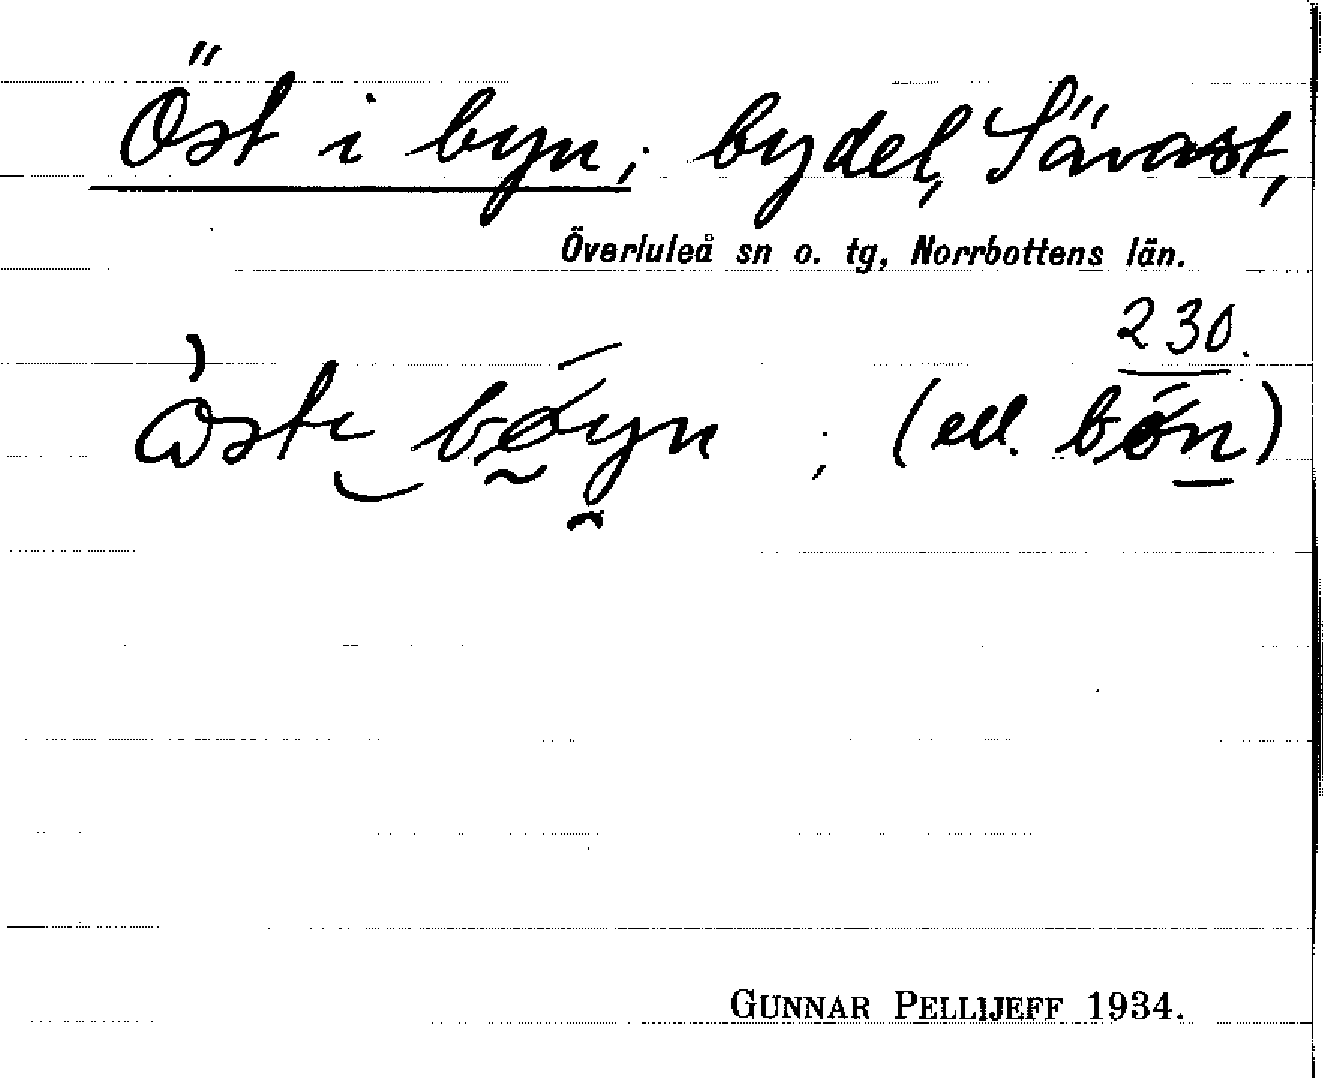 Öst i byn; bydel, Sävast,
Överluleå sn o. tg, Norrbottens län.
230.
(ell.
GUNNAR PELLIJEFF 1934.